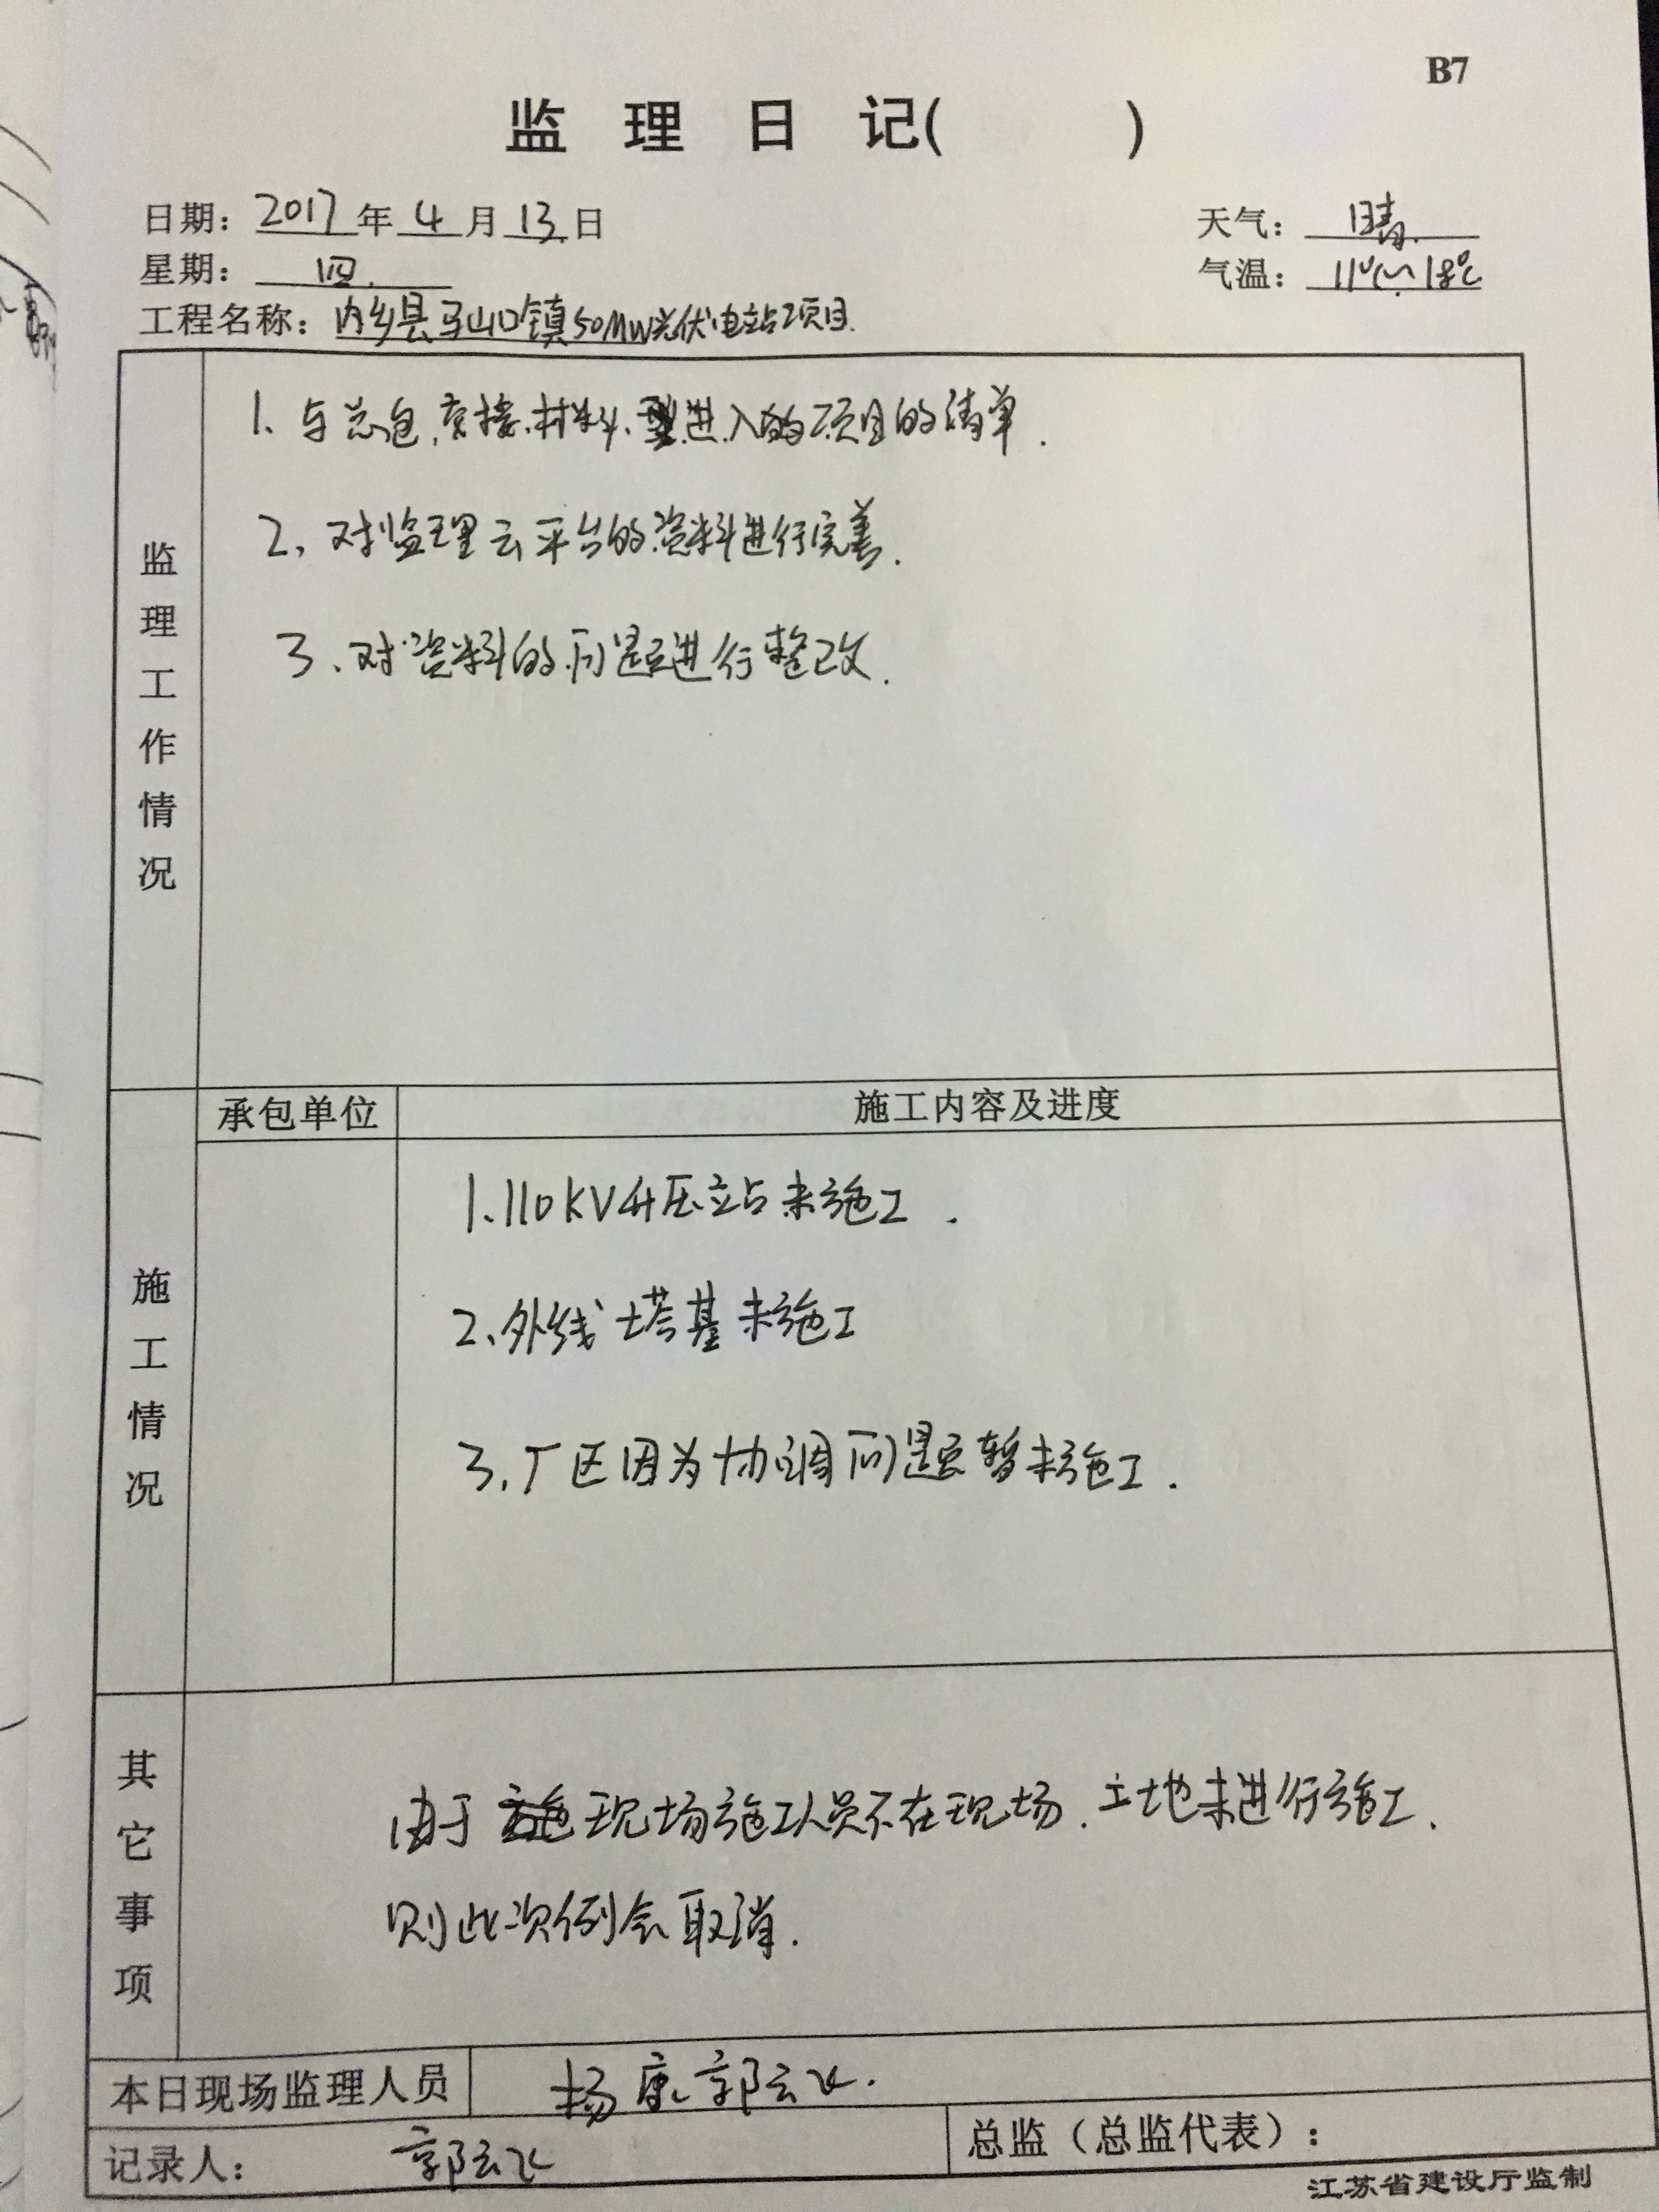 B7
监理日记(　　)
日期：2017年4月13日　天气：晴.
星期：四.　气温：11℃~18℃
工程名称：内乡县马山口镇50MW光伏电站项目.
监理工作情况
1、与总包交接材料、进入的项目的清单.
2、对监理云平台的资料进行完善.
3、对资料的问题进行整改.
施工情况
承包单位　施工内容及进度
1、110KV升压站未施工.
2、外线塔基未施工
3、厂区因为协调问题暂未施工.
其它事项
由于现场施工人员不在现场.土地未进行施工.
则此次例会取消.
本日现场监理人员　杨康 郭云飞.
记录人：郭云飞　总监（总监代表）：
江苏省建设厅监制